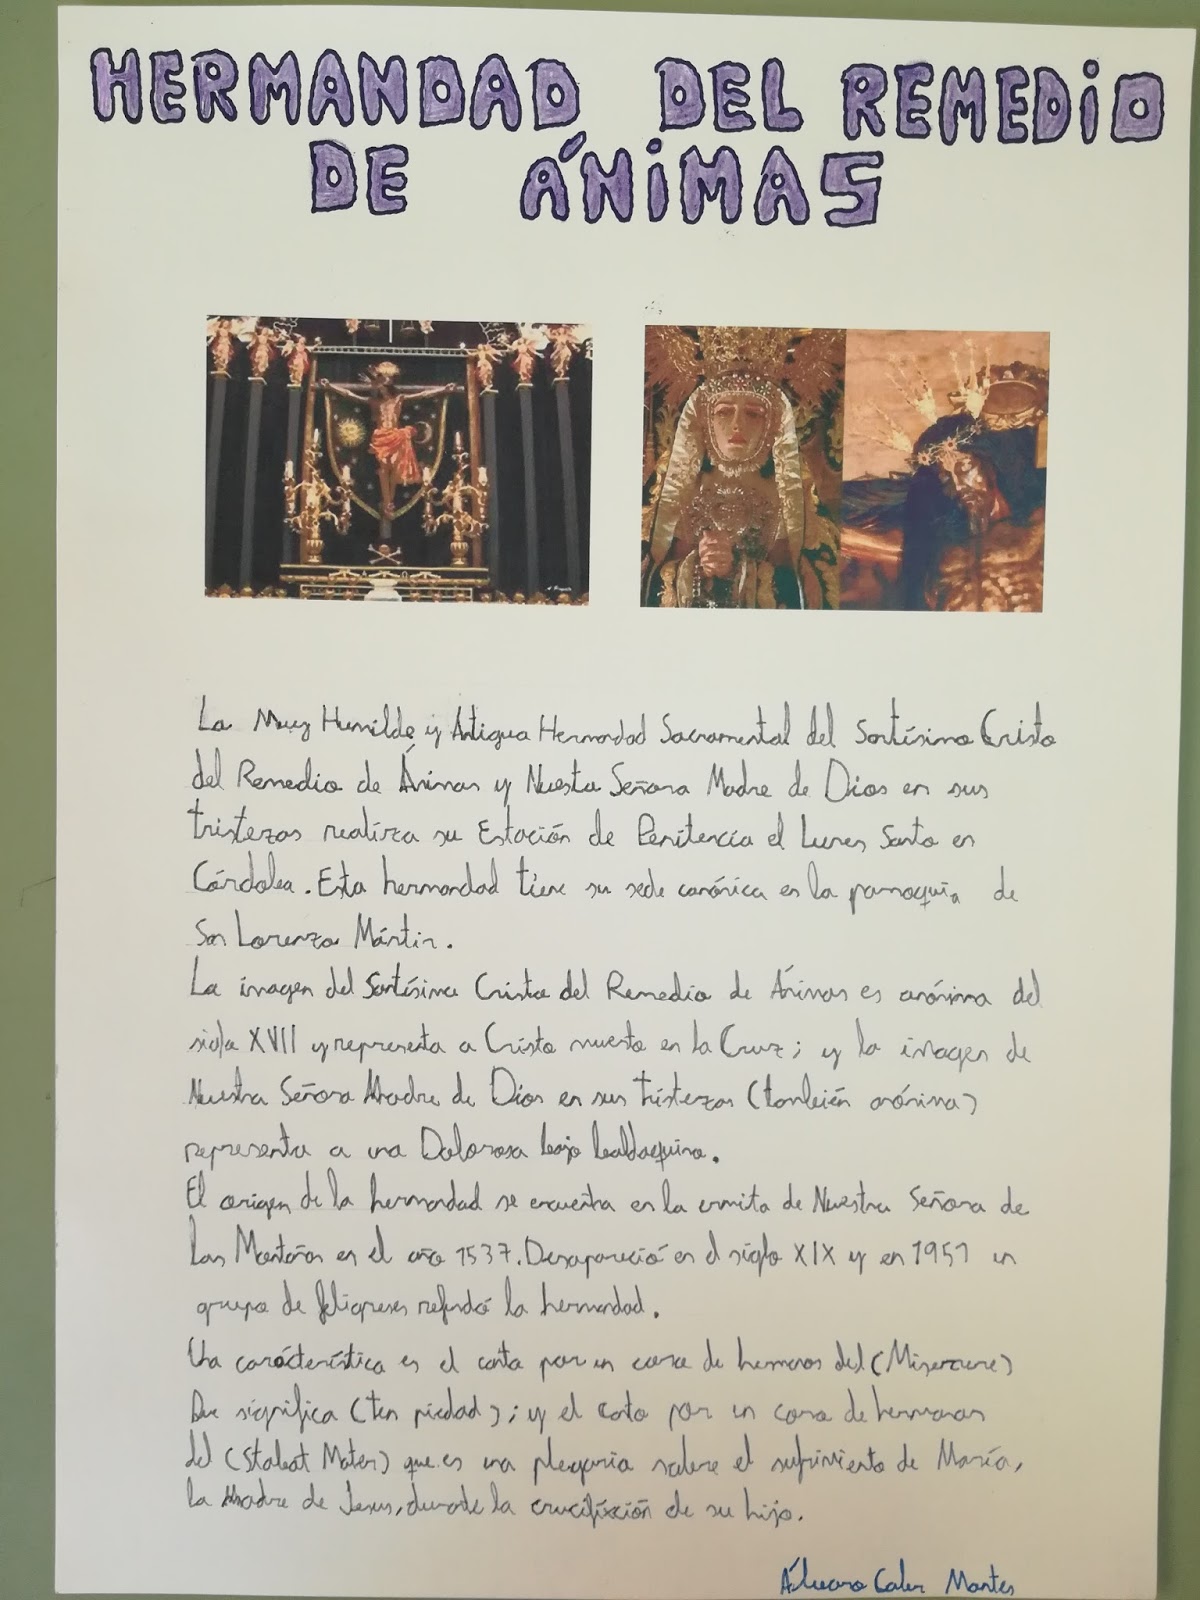 HERMANDAD DEL REMEDIO
DE ÁNIMAS
La Muy Humilde y Antigua Hermandad Sacramental del Santísimo Cristo
del Remedio de Ánimas y Nuestra Señora Madre de Dios en sus
tristezas realiza su Estación de Penitencia el Lunes Santo en
Córdoba. Esta hermandad tiene su sede canónica en la parroquia de
San Lorenzo Mártir.
La imagen del Santísimo Cristo del Remedio de Ánimas es anónima del
siglo XVII y representa a Cristo muerto en la Cruz; y la imagen de
Nuestra Señora Madre de Dios en sus tristezas (también anónima)
representa a una Dolorosa bajo baldaquino.
El origen de la hermandad se encuentra en la ermita de Nuestra Señora de
las Montañas en el año 1537. Desapareció en el siglo XIX y en 1951 un
grupo de feligreses refundó la hermandad.
Una carácterística es el canto por un coro de hermanos del (Miserere)
Que significa (ten piedad); y el canto por un coro de hermanas
del (Stabat Mater) que es una plegaria sobre el sufrimiento de María,
la Madre de Jesus, durante la crucifixión de su hijo.
Álvaro Caler Montes